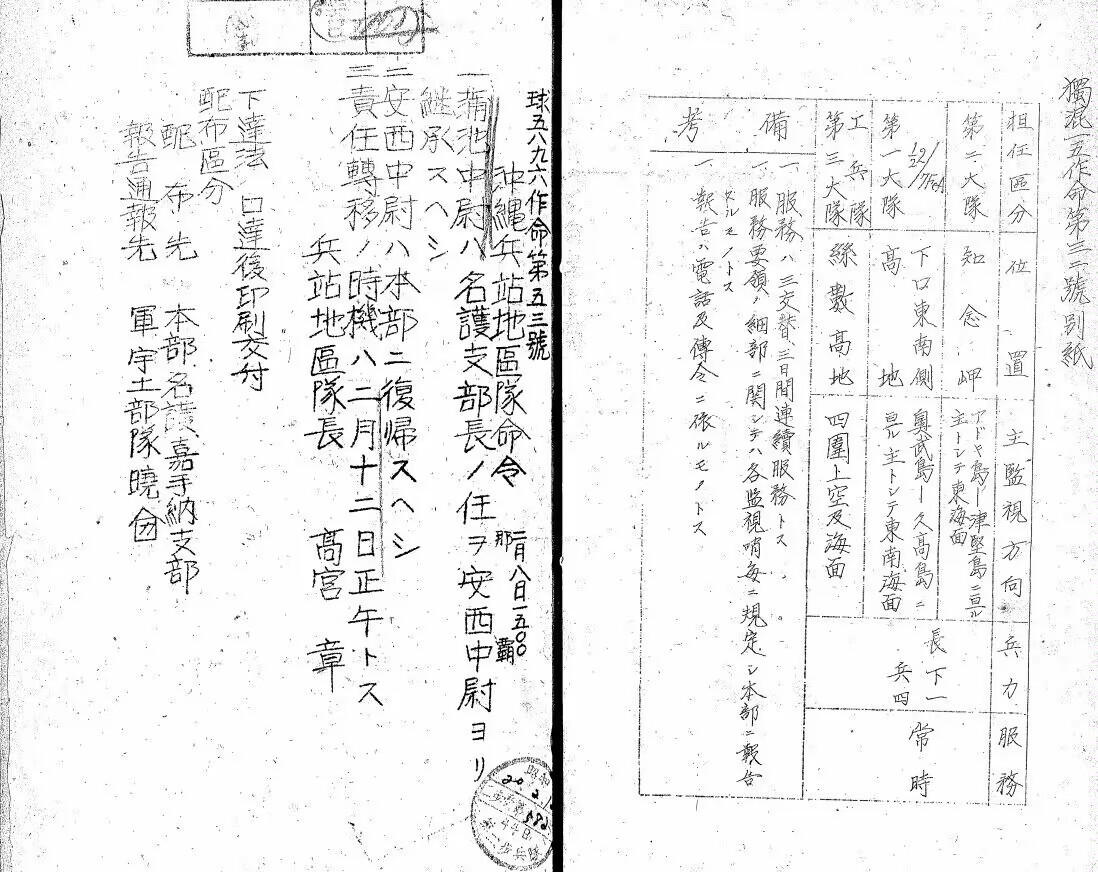 獨混一五作命第三二號別紙
担任區分
位置
主監視方向
兵力
服務
第二大隊
知念岬
アドキ島ー津堅島ニ亘ル
主トシテ東海面
第一大隊
下口東南側
高地
奥武島ー久高島ニ
亘ル主トシテ東南海面
工兵隊
第三大隊
絲數高地
四圍上空及海面
長下一
兵四
常時
備考
一、服務ハ三交替、三日間連續服務トス
一、服務要領ノ細部ニ関シテハ各監視哨毎ニ規定シ本部ニ報告
スルモノトス
一、報告ハ電話及傳令ニ依ルモノトス
球五八九六作命第五三號
沖縄兵站地區隊命令
二月八日一五〇〇
那覇
一、彌池中尉ハ名護支部長ノ任ヲ安西中尉ヨリ
継承スヘシ
二、安西中尉ハ本部ニ復帰スヘシ
三、責任轉移ノ時機ハ二月十二日正午トス
兵站地區隊長 高宮章
下達法 口達後印刷交付
配布區分
配布先 本部名護、嘉手納支部
報告通報先 軍宇土部隊曉
昭和
20.2.1